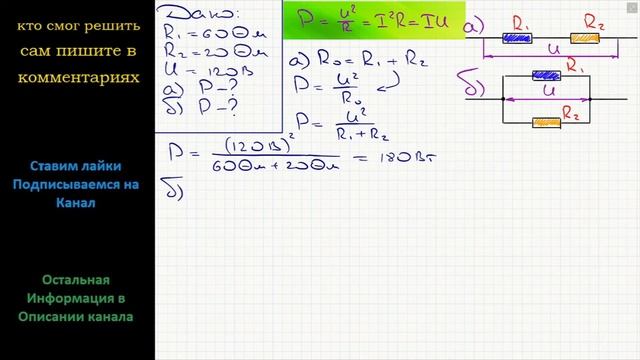 кто смог решить
сам пишите в
комментариях
Ставим лайки
Подписываемся на
Канал
Остальная
Информация в
Описании канала
Дано:
R₁ = 60 Ом
R₂ = 20 Ом
U = 120 В
а) P - ?
б) P - ?
P = U²/R = I²R = IU
а) R₀ = R₁ + R₂
P = U²/R₀
P = U²/(R₁ + R₂)
P = (120 В)²/(60 Ом + 20 Ом) = 180 Вт
б)
а) R₁ R₂
U
б) R₁
U
R₂